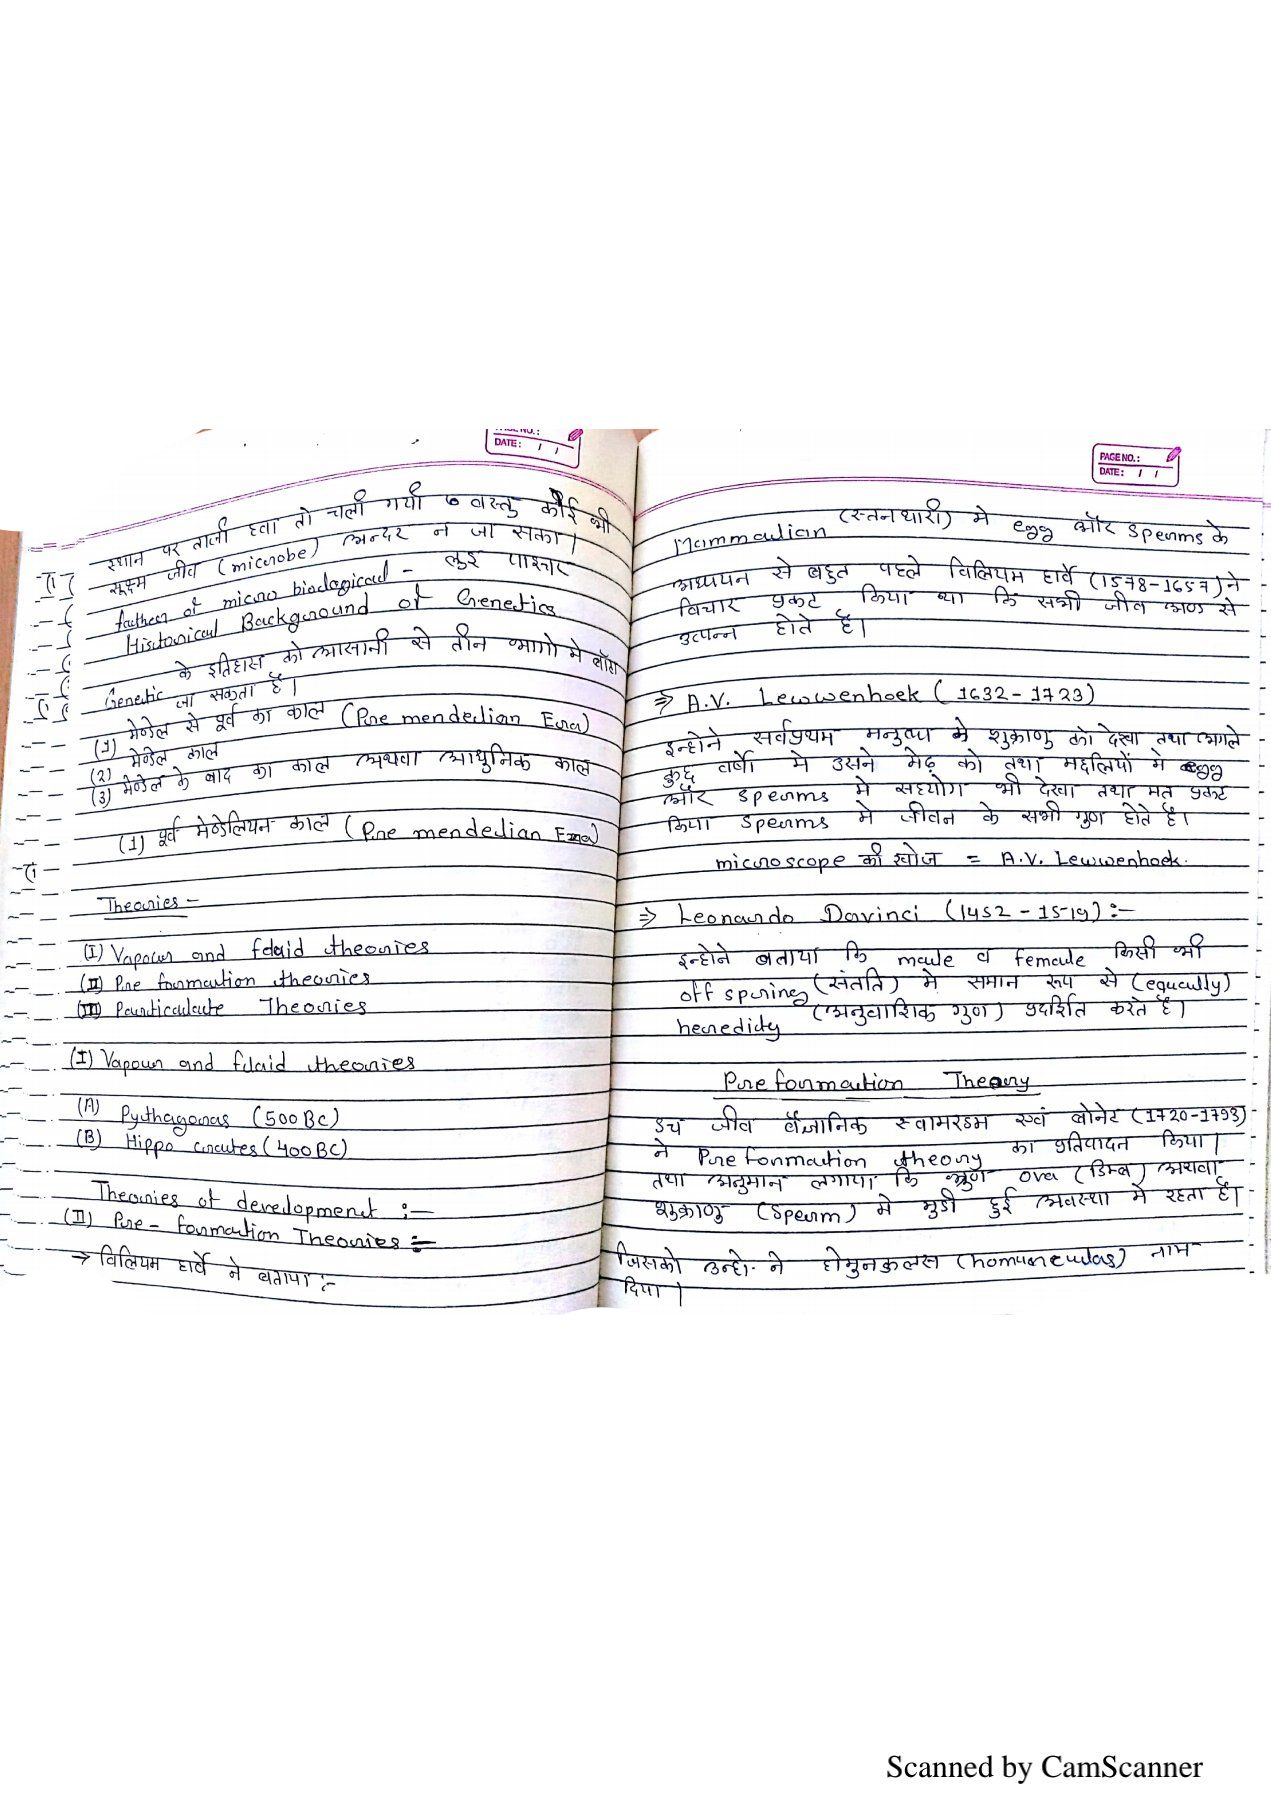 PAGE NO.:
DATE: / /
स्थान पर ताजी हवा तो चली गयी वस्तु कोई भी
सूक्ष्म जीव (microbe) अन्दर न जा सका।
father of micro biological - लुई पाश्चर
Historical Background of Genetics
के इतिहास को आसानी से तीन भागो मे बाँटा
Genetic जा सकता है।
(1) मेण्डेल से पूर्व का काल (Pre mendelian Era)
(2) मेण्डेल काल
(3) मेण्डेल के बाद का काल अथवा आधुनिक काल
(1) पूर्व मेण्डेलियन काल (Pre mendelian Era)
Theories -
(I) Vapour and fluid theories
(II) Pre formation theories
(III) Particulate Theories
(I) Vapour and fluid theories
(A) Pythagoras (500 BC)
(B) Hippocrates (400 BC)
Theories of development :-
(II) Pre - formation Theories :-
→ विलियम हार्वे ने बताया :-
PAGE NO.:
DATE: / /
Mammalian (स्तनधारी) मे egg और sperms के
अध्ययन से बहुत पहले विलियम हार्वे (1578-1657) ने
विचार प्रकट किया था कि सभी जीव अण्ड से
उत्पन्न होते है।
⇒ A.V. Leuwenhoek (1632-1723)
इन्होने सर्वप्रथम मनुष्य के शुक्राणु को देखा तथा अगले
कुछ वर्षो मे उसने मेढ़ को तथा मछलियों मे egg
और sperms मे सहयोग भी देखा तथा मत प्रकट
किया sperms मे जीवन के सभी गुण होते है।
microscope की खोज = A.V. Leuwenhoek.
⇒ Leonardo Davinci (1452 - 1519) :-
इन्होने बताया कि male व female किसी भी
off spring (संतति) मे समान रूप से (equally)
heredity (अनुवाशिक गुण) प्रदर्शित करते है।
Pre formation Theory
डच जीव वैज्ञानिक स्वामरडम एवं बोनेट (1720-1793)
ने Pre formation theory का प्रतिपादन किया।
तथा अनुमान लगाया कि भ्रुण ova (डिम्ब) अथवा
शुक्राणु (sperm) मे मुडी हुई अवस्था मे रहता है।
जिसको उन्हो ने होमुनकुलस (homunculas) नाम
दिया।
Scanned by CamScanner